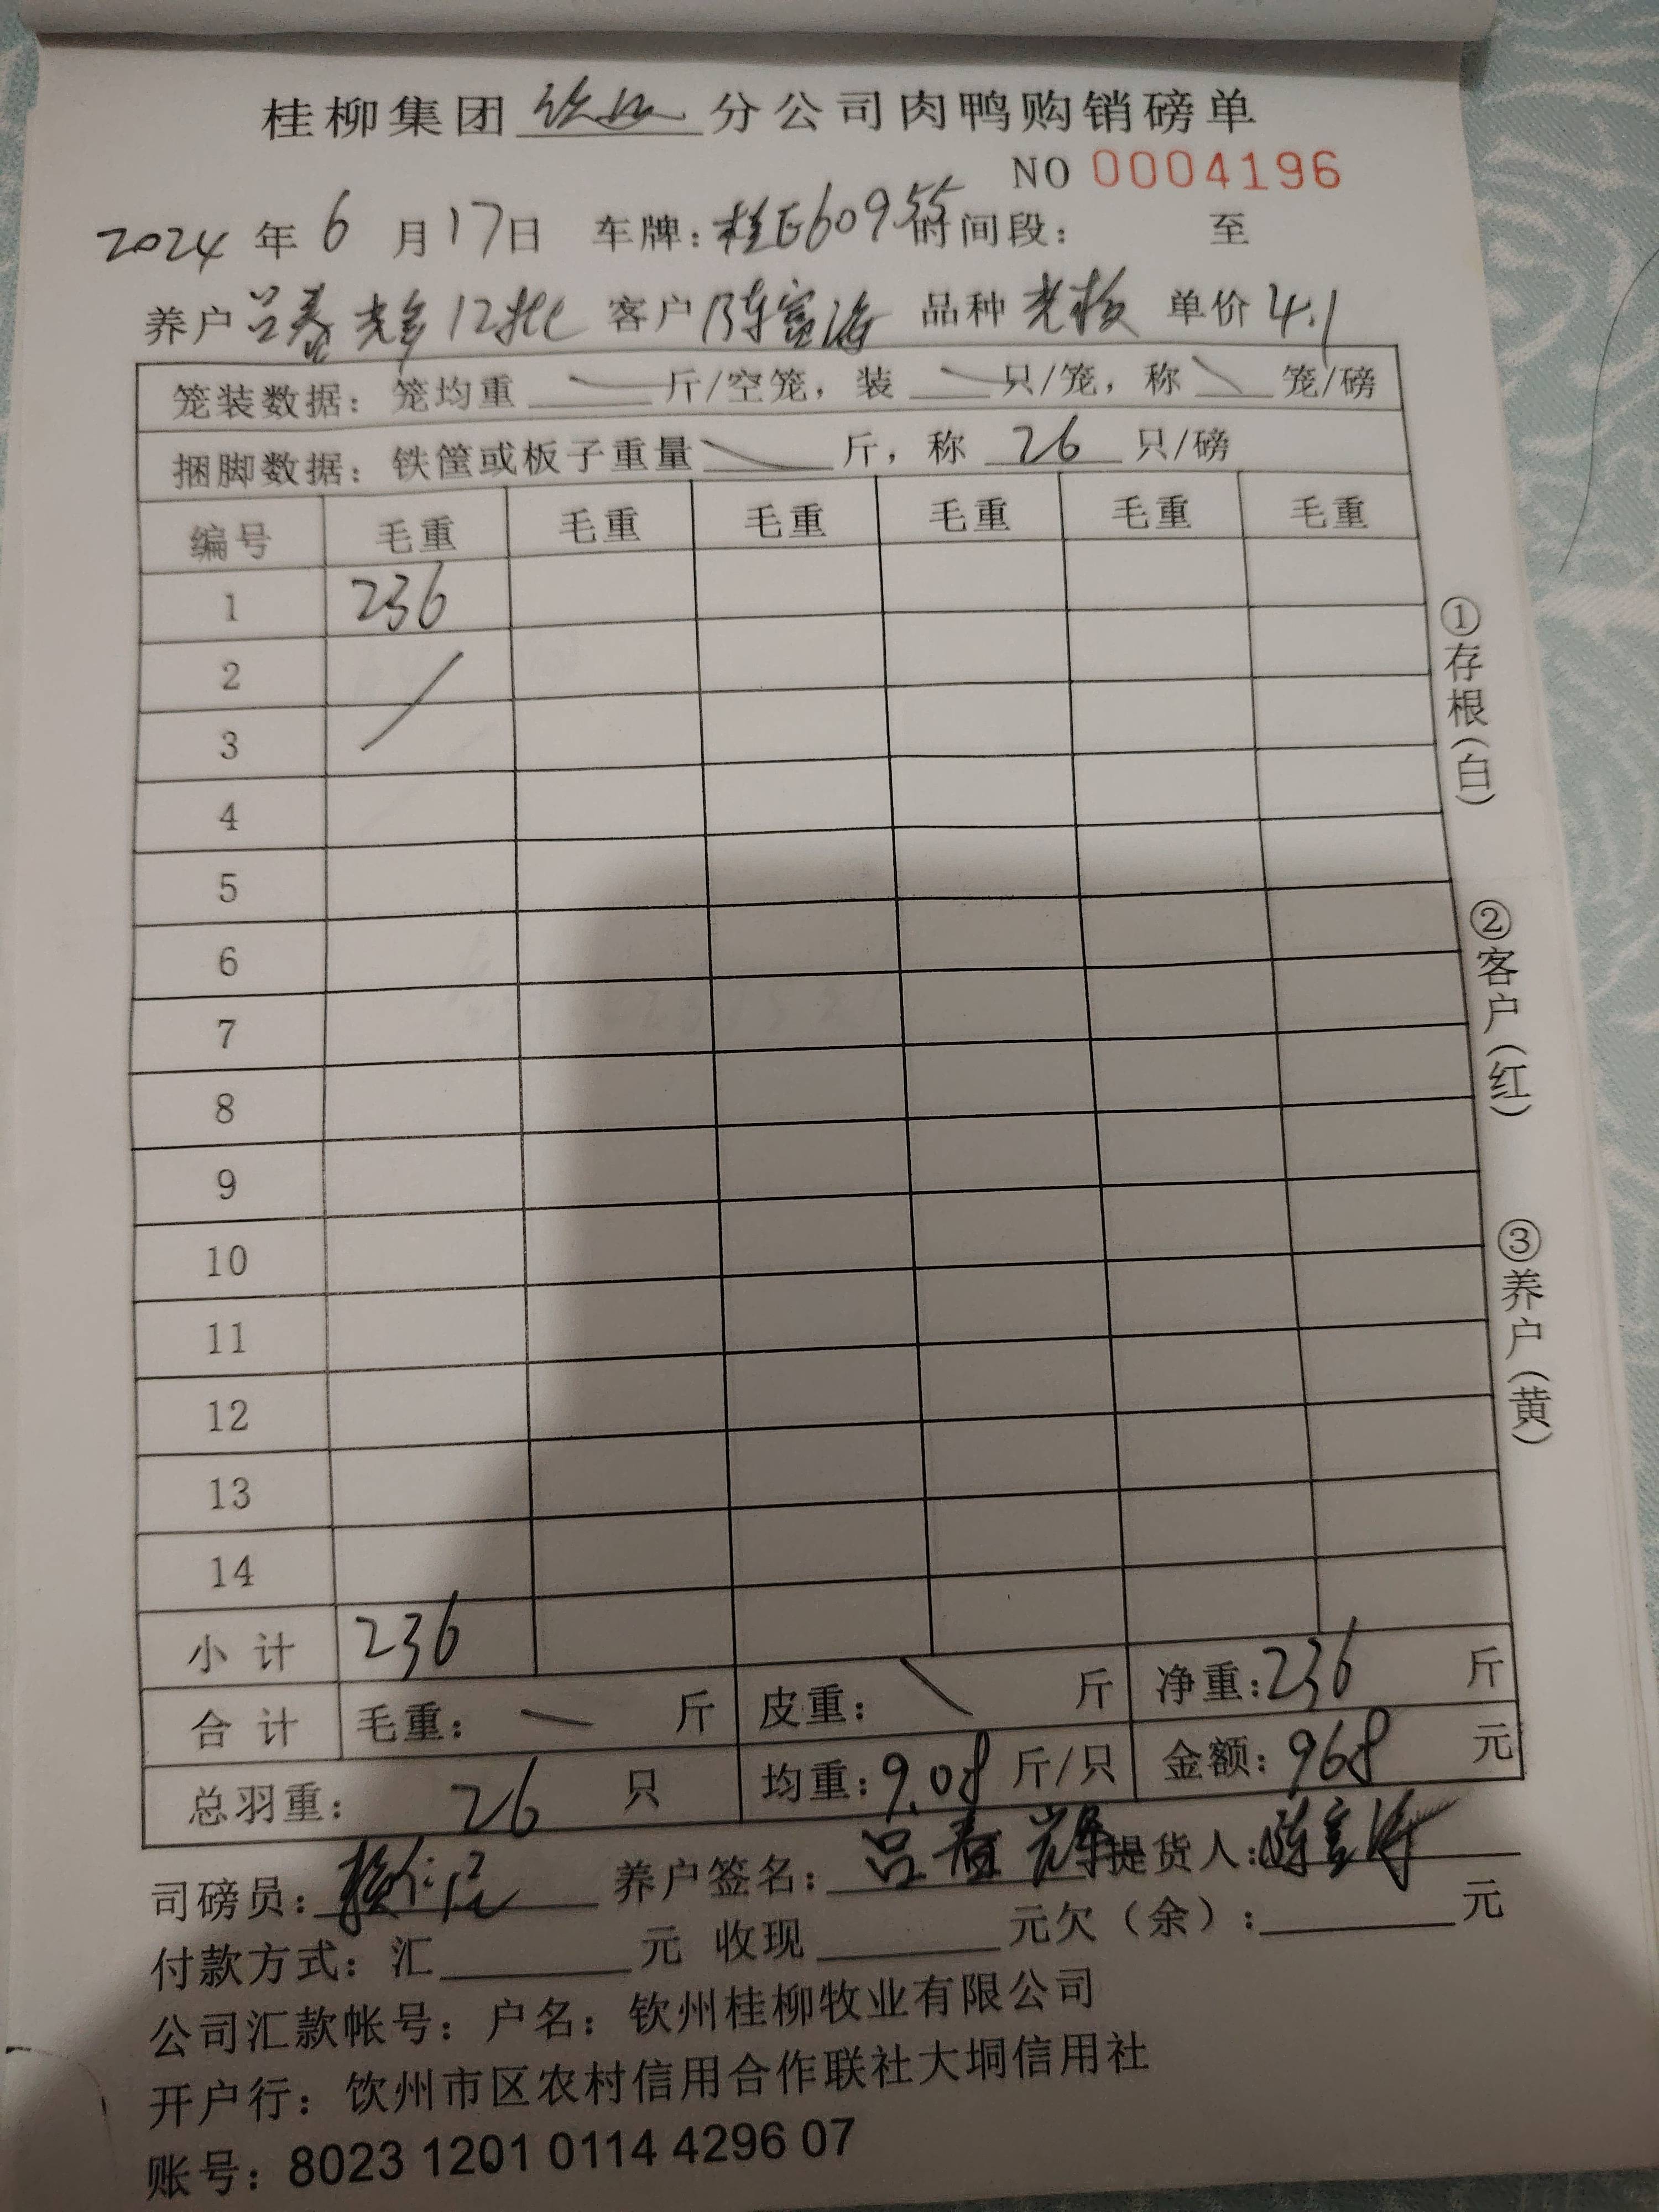 桂柳集团 分公司肉鸭购销磅单
NO 0004196
2024 年 6 月 17日 车牌:桂E60955 时间段: 至
养户 吕春光 12批 客户 陈富海 品种 单价 4.1
笼装数据: 笼均重 斤/空笼, 装 只/笼, 称 笼/磅
捆脚数据: 铁筐或板子重量 斤, 称 26 只/磅
编号 毛重 毛重 毛重 毛重 毛重 毛重
1 236
2
3
4
5
6
7
8
9
10
11
12
13
14
小计 236
合计 毛重: 斤 皮重: 斤 净重:236 斤
总羽重: 26 只 均重:9.08 斤/只 金额:968 元
司磅员: 养户签名: 吕春 提货人:陈富海
付款方式: 汇 元 收现 元欠(余): 元
公司汇款帐号: 户名: 钦州桂柳牧业有限公司
开户行: 钦州市区农村信用合作联社大垌信用社
账号: 8023 1201 0114 4296 07
①存根(白)
②客户(红)
③养户(黄)